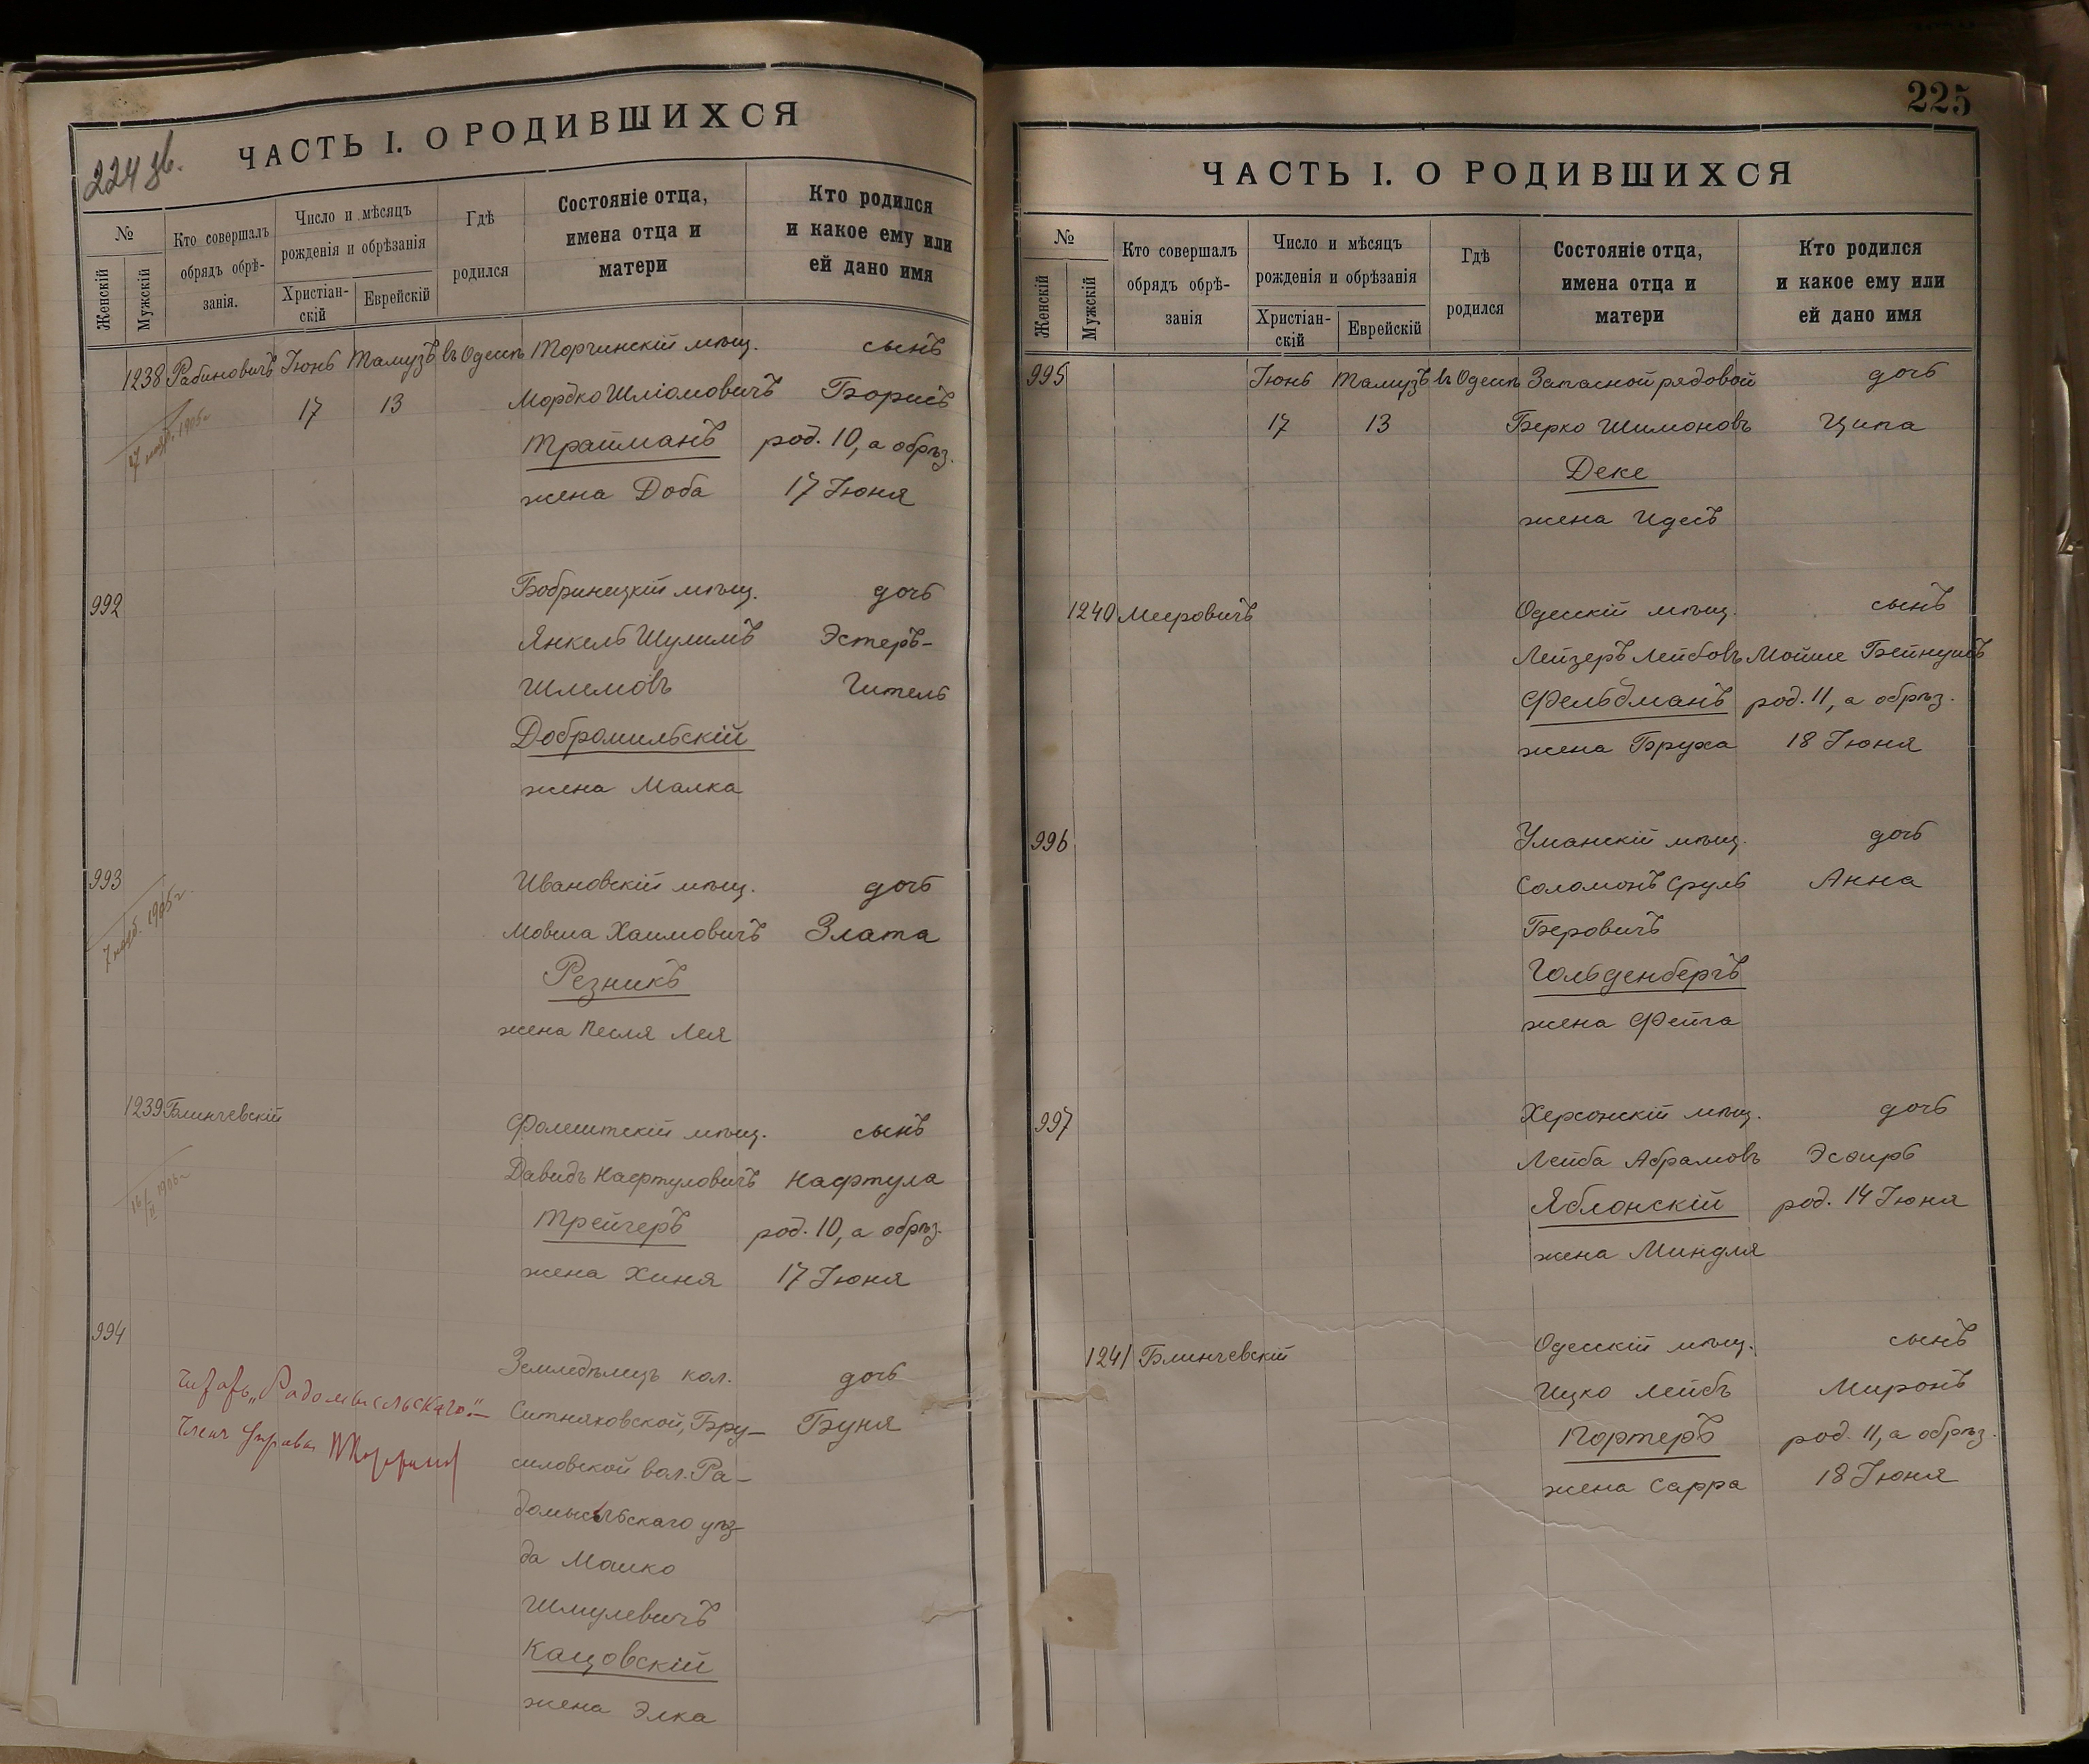 224 об.
ЧАСТЬ I. О РОДИВШИХСЯ
№
Женскій
Мужскій
Кто совершалъ
обрядъ обрѣ-
занія.
Число и мѣсяцъ
рожденія и обрѣзанія
Христіан-
скій
Еврейскій
Гдѣ
родился
Состояніе отца,
имена отца и
матери
Кто родился
и какое ему или
ей дано имя
1238 Рабиновичъ Іюнь Тамузъ въ Одессѣ Торчинскій мѣщ. сынъ
17 13 Мордко Шліомовичъ Борисъ
Трайманъ род. 10, а обрѣз.
жена Доба 17 Іюня
1905 г
992 Бобринецкій мѣщ. дочь
Янкель Шулимъ Эстеръ-
Шлемовъ Гитель
Добромильскій
жена Малка
993 Ивановскій мѣщ. дочь
Мовша Хаимовичъ Злата
Резникъ
жена Песля Лея
7 1905 г
1239 Блинчевскій Фалештскій мѣщ. сынъ
Давидъ Нафтуловичъ Нафтула
Трейгеръ род. 10, а обрѣз.
жена Хиня 17 Іюня
16/II 1906 г
994 Земледѣлецъ кол. дочь
Ситняковской, Бру- Буня
силовской вол. Ра-
домысльскаго уѣз-
да Мошко
Шмулевичъ
Кацовскій
жена Элка
Читать „Радомысльскаго“.
Членъ Управы
225
ЧАСТЬ I. О РОДИВШИХСЯ
№
Женскій
Мужскій
Кто совершалъ
обрядъ обрѣ-
занія
Число и мѣсяцъ
рожденія и обрѣзанія
Христіан-
скій
Еврейскій
Гдѣ
родился
Состояніе отца,
имена отца и
матери
Кто родился
и какое ему или
ей дано имя
995 Іюнь Тамузъ въ Одессѣ Запасной рядовой дочь
17 13 Берко Шимоновъ Ципа
Деке
жена Идесъ
1240 Мееровичъ Одесскій мѣщ. сынъ
Лейзеръ Лейбовъ Мойше Бейнушъ
Фельдманъ род. 11, а обрѣз.
жена Бруха 18 Іюня
996 Уманскій мѣщ. дочь
Соломонъ Сруль Анна
Беровичъ
Гольденбергъ
жена Фейга
997 Херсонскій мѣщ. дочь
Лейба Абрамовъ Эсѳирь
Яблонскій род. 14 Іюня
жена Миндля
1241 Блинчевскій Одесскій мѣщ. сынъ
Ицко Лейбъ Миронъ
Портеръ род. 11, а обрѣз.
жена Сарра 18 Іюня